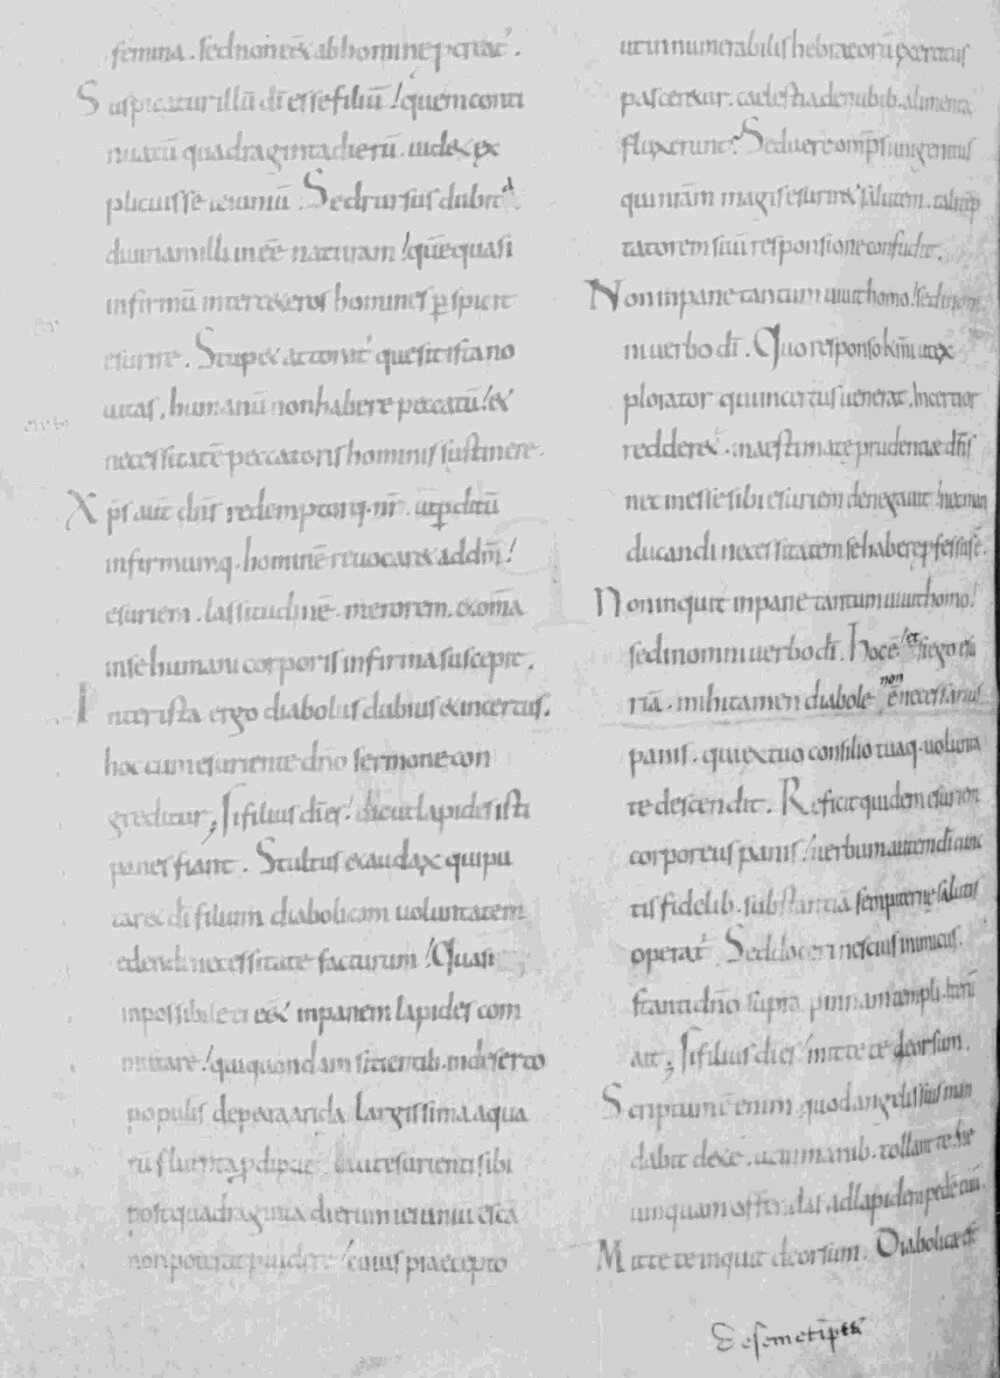 femina. sed non eẽ& ab homine pctat̃.
Suspicatur illũ dĩ esse filiũ! quem conti
nuatũ quadraginta dierũ. uidex ex
plicuisse ieiuniũ. Sed rursus dubitꝰ
diuinam illi inẽe naturam! quẽ quasi
infirmũ inter ceteros homines ꝑspicit
esurire. Stup& attonit̃ que sit ista no
uitas, humanũ non habere peccatũ! &
necessitatẽ peccatoris hominis sustinere.
Xp̃s aut̃ dñs redemptorq. nr̃. ut ꝑditũ
infirmumq. hominẽ reuocar& ad dm̃!
esuriem. lassitudinẽ. merorem. & om̃a
in se humani corporis infirma suscepit.
Inter ista ergo diabolus dubius & incertus.
hoc cum esuriente dño sermone con
greditur; Si filius dĩ es! dic ut lapides isti
panes fiant. Stultus & audax qui pu
tar& dĩ filium diabolicam uoluntatem
edendi necessitate facturum! Quasi
inpossibile ei eẽ& in panem lapides com
mutare! qui quondam sitientib. in deserto
populis de petra arida largissima aqua
rũ fluenta
post quadraginta dierum ieiuniũ escã
non poterat! cuius praecepto
ut innumerabilis hebraeorũ exercitus
pascerexur. caelestia de nubib. alimenta
fluxerunt. Sed uere omp̃s unigenitus
quiniam magis esurir& salutem. tali
tatorem suũ responsione confudit.
Non in pane tantum uiuit homo! sed in om
ni uerbo dĩ. Quo responso ut ex
plorator qui incertus uenerat. incertior
redder&. inaestimatę prudentiae dñs
nec inesse sibi esuriem denegauit! nec man
ducandi necessitatem se haberę pfessus ẽ.
Non inquit in pane tantum uiuit homo!
sed in omni uerbo dĩ. Hoc ẽ! et si ego esu
riã. mihi tamen diabole non ẽ necessarius
panis. qui ex tuo consilio tuaq. uolunta
te descendit. Reficit quidem esuriem
corporeus panis! uerbum autem dĩ cunc
tis fidelib. substantiã sempiternę salutis
operat̃. Sed doceri nescius inimicus.
stanti dño supra pinnam templi. iterũ
ait; Si filius dĩ es! mitte te deorsum.
Scriptum ẽ enim. quod angelis suis man
dabit de te. ut in manib. tollant te. ne
umquam offendas ad lapidem pedẽ tuũ.
Mitte te inquit deorsum. Diabolica